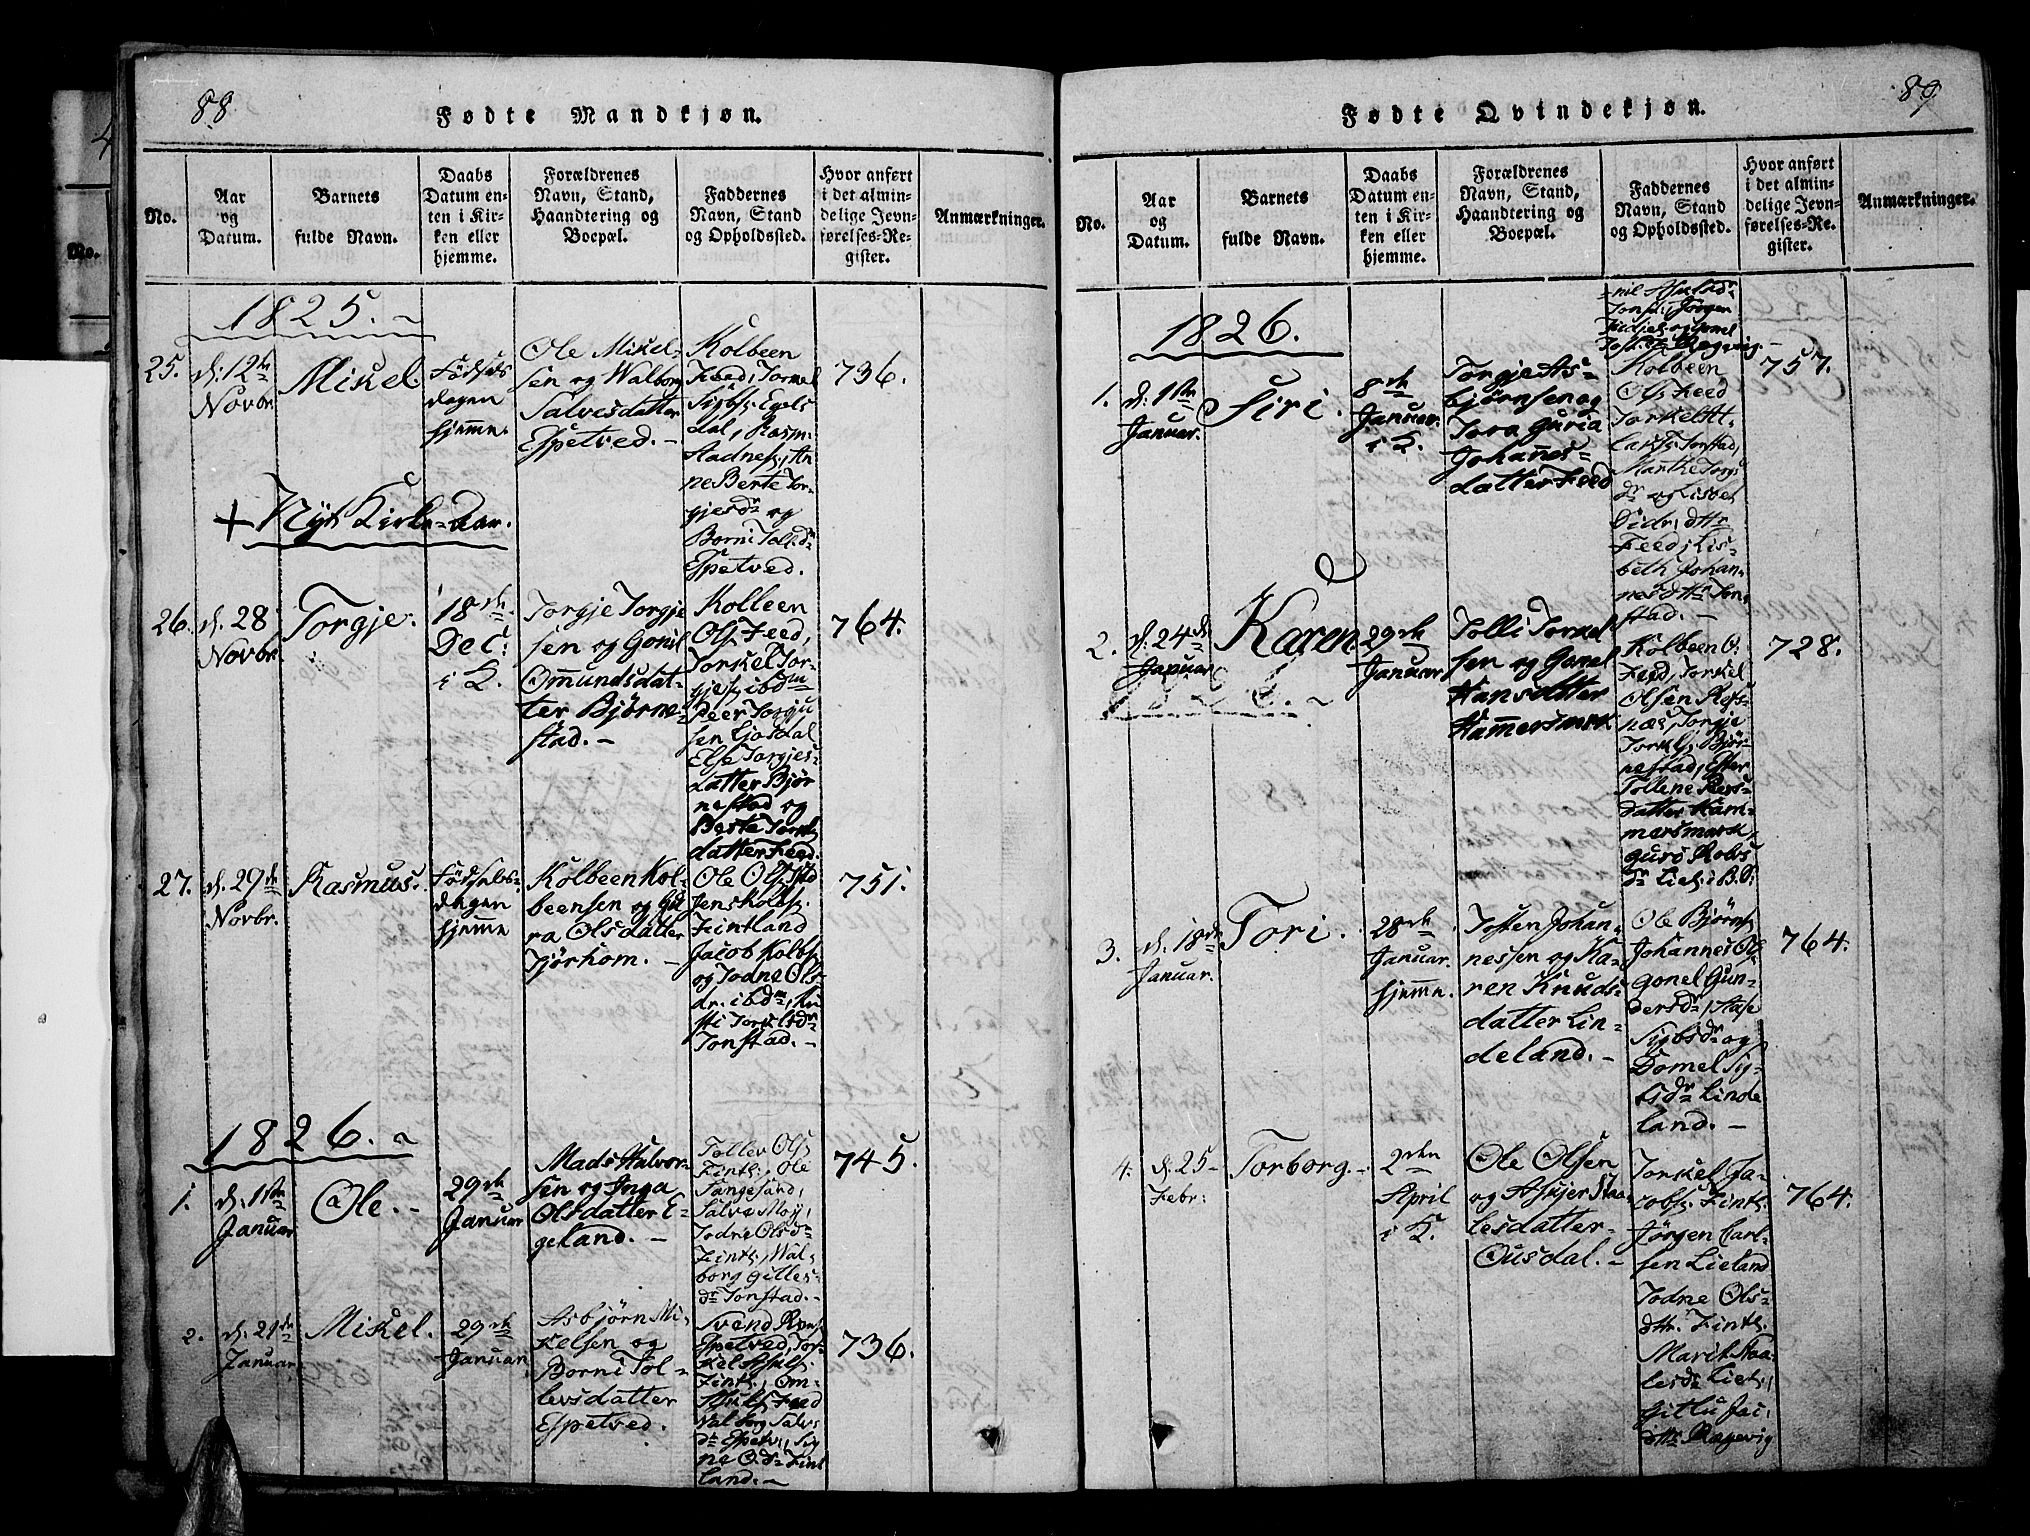 88
Fødte Mandkjøn.
No.
Aar
og
Datum.
Barnets
fulde Navn.
Daabs
Datum en-
ten i Kir-
ken eller
hjemme.
Forældrenes
Navn, Stand,
Haandtering og
Boepæl.
Faddernes
Navn, Stand
og Opholdssted.
Hvor anført
i det almin-
delige Jevn-
førelses-Re-
gister.
Anmærkninger.
1825.
25.
d. 12te
Novbr
Mikel.
Fødsels
dagen
hjemme.
Ole Mikel-
sen og Walborg
Salvesdatter
Espetved.
Kolbeen
Feed, Torkel
Sigbs. Egels
dal, Rasm.
Stadnes, An
ne Berte Tor-
gjesdr og
Borni Toll.dr
Espetved.
736.
+ Nyt Kirke-Aar.
26.
d. 28
Novbr.
Torgje.
18de
Dec:
i K.
Torgje Torgje
sen og Gonil
Ommundsdat-
ter Bjørne-
stad.
Kolbeen
Ols. Feed,
Torkel Tor-
gjes. ibdm
Peer Torgju
sen Gosdal
Else Torgjes-
datter Bjør
nestad og
Berte Torkels
datter Feed.
764.
27.
d. 29de
Novbr.
Rasmus.
Fødsels-
dagen
hjemme
Kolbeen Kol-
beensen og Gu
ra Olsdatter
Tjørhom.
Ole Ols.
Jens Kolbs.
Fintland
Jacob Kolbs.
og Todne Ols-
dr. ibdm,
Torkelsdr
Tonstad.
751.
1826.
1.
d. 1ste
Januar
Ole.
29de
Januar
Mads Halvor-
sen og Inga
Olsdatter E-
geland.
Tollev Ols
Fintl., Ole
Salve Moj,
Todne Olsd
Fintl., Wal-
borg Gilles-
dr Tonstad.
745.
2.
d. 21de
Januar.
Mikel.
29de
Januar.
Asbjørn Mi-
kelsen og
Borni Tol-
levsdatter
Espetved.
Svend
Espetved, Tor-
kel Asuls.
Fintl., Om-
Asuls. Feed
Valborg Salvs
dr Espetv., Sig
ne O.dr Fint
land.
736.
89
Fødte Qvindekjøn.
No.
Aar
og
Datum.
Barnets
fulde Navn.
Daabs
Datum en-
ten i Kir-
ken eller
hjemme.
Forældrenes
Navn, Stand,
Haandtering og
Boepæl.
Faddernes
Navn, Stand
og Opholdssted.
Hvor anført
i det almin-
delige Jevn-
førelses-Re-
gister.
Anmærkninger.
1826.
1.
d. 1ste
Januar.
Siri.
8de
Januar.
i K.
Torgje As-
bjørnsen og
Tora Guria
Johannes-
datter Feed
Kolbeen
Ols. Feed
Torkel At-
lakss. Tonstad,
Marthe Torgs
dr og Lisbet
Sidr. dttr
Feed, Lis-
beth Johan-
nesdttr Ton-
stad.
757.
2.
d. 24de
Januar
Karen
29de
Januar
Tolli Torkel
sen og Gonel
Hansdatter
Hammersmark
Kolbeen O.
Feed, Torkel
Olsen Refs-
næs, Torgje
Torkels. Bjør-
nestad, Ester
Tollene Peers-
datter Ham-
mersmark,
Guro Robs
dr Liel. i B.S.
728.
3.
d. 18de
Januar.
Tori.
28de
Januar.
hjemme.
Tosten Johan-
nessen og Ka-
ren Knuds-
datter Lin-
deland.
Ole Bjørns.
Johannes Ols.
Gonel Gun-
dersdr, Aase
Sigbsdr og
Dornel Sy-
vertsdr Linde
land.
764.
4.
d. 25
Febr:
Torborg.
2den
April
i K.
Ole Olsen
og Asgjer Staa-
lesdatter
Ousdal.
Torkel Ja-
cobs. Fintl.
Jørgen Carl-
sen Lieland
Todne Ols-
dttr. Fintl.
Marit Staa-
lesdr Liel.,
Gitlu Jac.
dttr Ragevig
764.